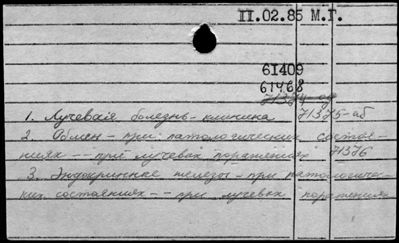 II.02.85 М.Г.
61409
61468
71374-аб
1. Лучевая болезнь - клиника 71375-аб
2. Обмен - при патологических состоя-
ниях -- при лучевых поражениях 71376
3. Эндокринные железы - при патологичес-
ких состояниях -- при лучевых поражениях